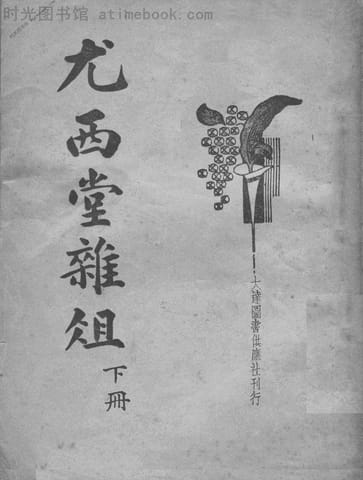 时光图书馆 atimebook.com
尤西堂雜俎
下冊
大達圖書供應社刊行